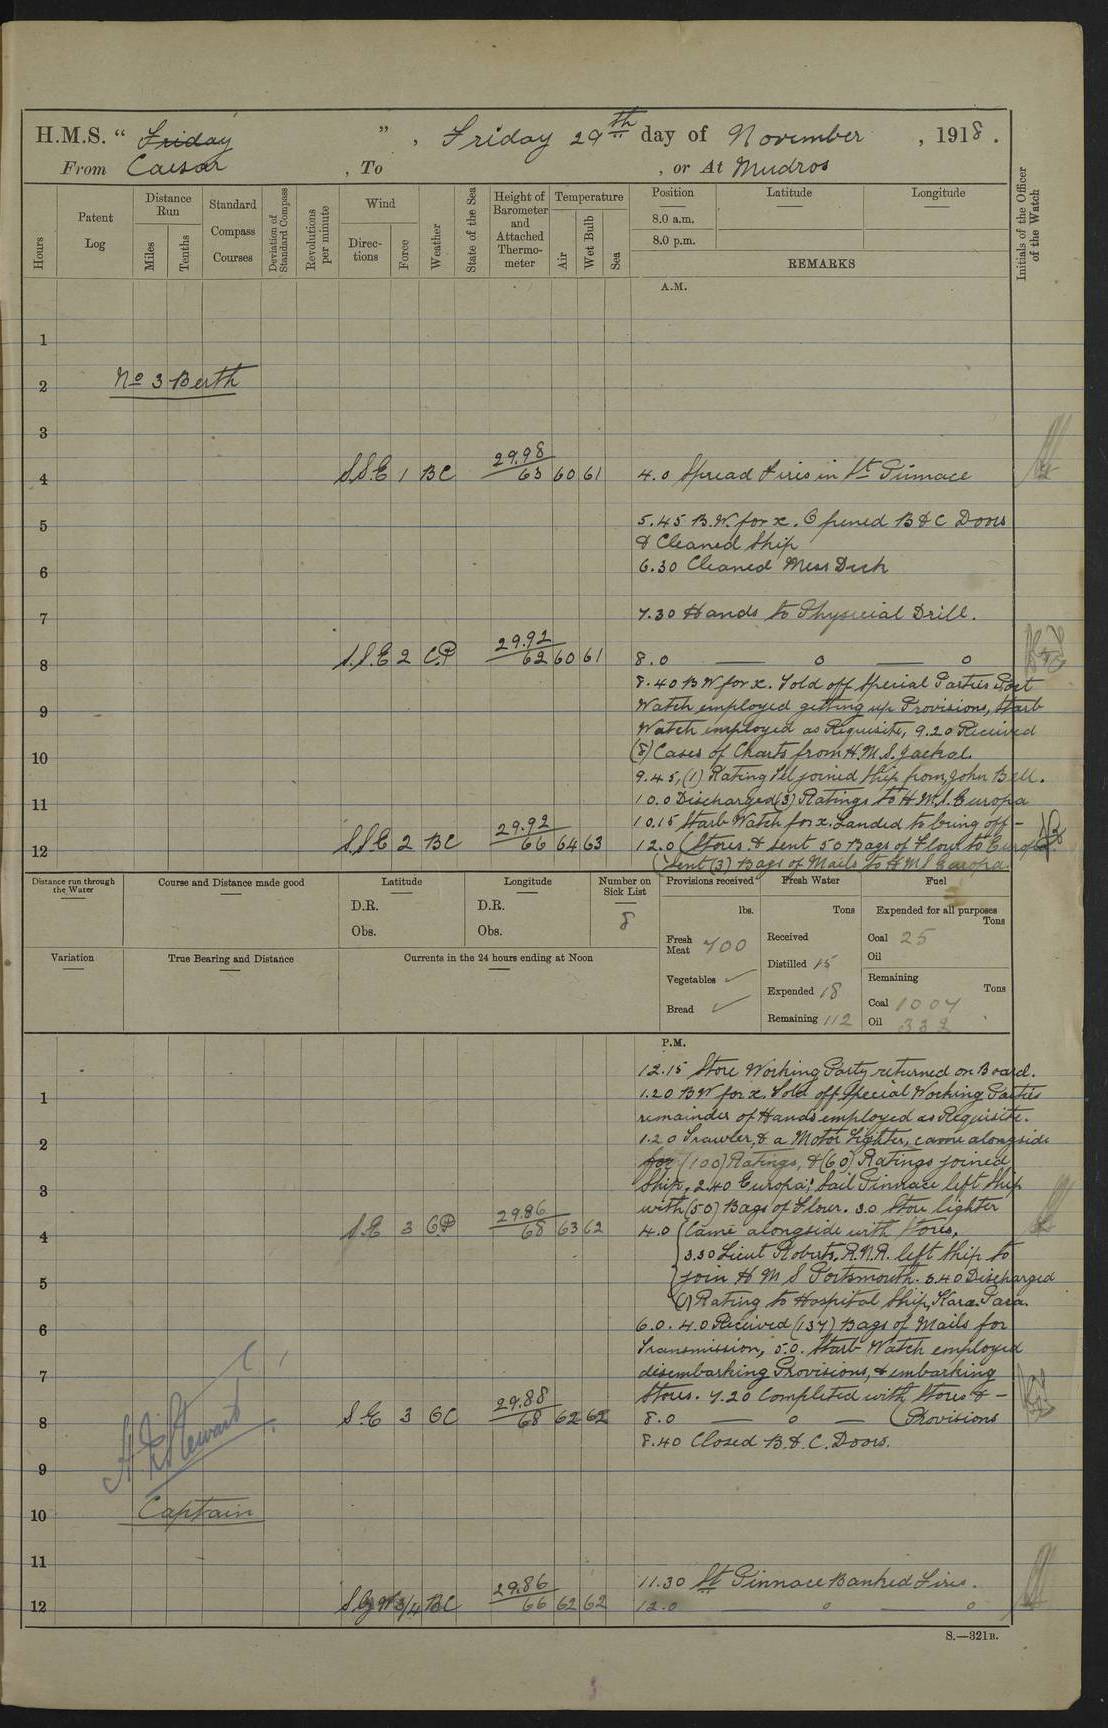 H.M.S. " Friday ", Friday 29th day of November, 1918.
From Caesar, To , or At Mudros
Hours
Patent Log
Distance Run
Miles
Tenths
Standard Compass Courses
Deviation of Standard Compass
Revolutions per minute
Wind
Direc-tions
Force
Weather
State of the Sea
Height of Barometer and Attached Thermo-meter
Temperature
Air
Wet Bulb
Sea
Position Latitude Longitude
8.0 a.m.
8.0 p.m.
REMARKS
Initials of the Officer of the Watch
A.M.
1
2 No 3 Berth
3
4 S.S.E 1 BC 29.98 63 60 61 4.0 Spread Fires in St Pinnace
5 5.45 B.W. for x. Opened B & C Doors
& Cleaned Ship
6 6.30 Cleaned Mess Deck
7 7.30 Hands to Physicial Drill.
8 S.S.E 2 C.P 29.92 62 60 61 8.0 — o — o
8.40 B W for x. Told off Special Parties Port
9 Watch employed getting up Provisions, Starb
Watch employed as Requisite, 9.20 Received
10 (8) Cases of Charts from H.M.S. Jackal.
9.45, (1) Rating Tel joined Ship from, John Bell.
11 10.0 Discharged (3) Ratings to H.M.S. Europa
10.15 Starb Watch for x. Landed to bring off –
12 S.S.E 2 BC 29.92 66 64 63 12.0 (Stores. & sent 50 Bags of Flour to Europa.
(Sent (3) Bags of Mails to H M S Europa.
Distance run through the Water
Course and Distance made good
Latitude
D.R.
Obs.
Longitude
D.R.
Obs.
Number on Sick List
8
Provisions received
lbs.
Fresh Meat 700
Vegetables ✓
Bread ✓
Fresh Water
Tons
Received
Distilled 15
Expended 18
Remaining 112
Fuel
Expended for all purposes
Tons
Coal 25
Oil
Remaining
Tons
Coal 1007
Oil 332
Variation
True Bearing and Distance
Currents in the 24 hours ending at Noon
P.M.
12.15 Store Working Party returned on Board.
1 1.20 B W for x. Told off Special Working Parties
remainder of Hands employed as Requisite.
2 1.20 Trawler, & a Motor Lighter, came alongside
for (100) Ratings, & (60) Ratings joined
3 Ship. 2.40 Europa; Sail Pinnace left Ship
with (50) Bags of Flour. 3.0 Store lighter
4 S.E 3 CP 29.86 68 63 62 4.0 (Came alongside with Stores.
3.30 Lieut Roberts, R.N.R. left Ship to
5 join H M S Portsmouth. 3.40 Discharged
(1) Rating to Hospital Ship, Kara.Para.
6 6.0. 4.0 Received (137) Bags of Mails for
Transmission, 5.0. Starb Watch employed
7 disembarking Provisions, & embarking
Stores. 7.20 Completed with Stores & –
8 S E 3 OC 29.88 68 62 62 8.0 — o — (Provisions
8.40 Closed B. & C. Doors.
9
H Stewart
10 Captain
11
11.30 St Pinnace Banked Fires.
12 S by W 3/4 BC 29.86 66 62 62 12.0 — o — o
S.—321B.